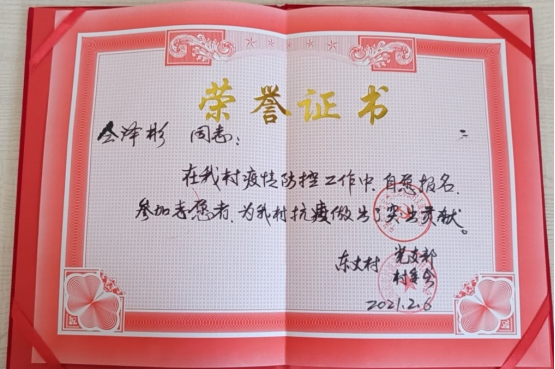 荣誉证书
泽彬 同志：
在我村疫情防控工作中，自愿报名，
参加志愿者，为我村抗疫做出了突出贡献。
东丈村 党支部
村委会
2021.2.6